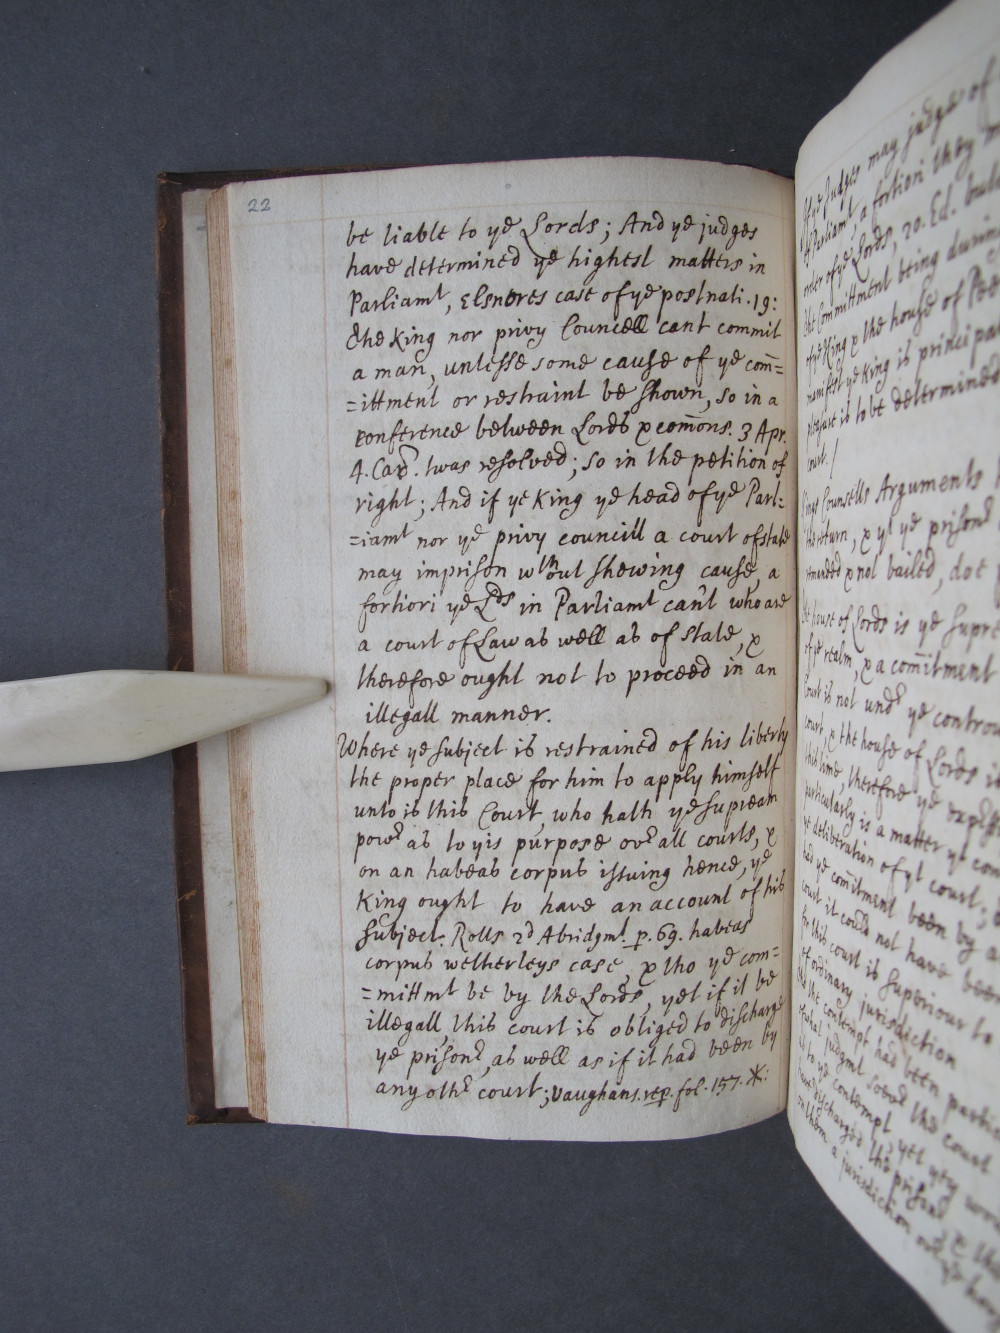 22
be liable to ye Lords; And ye judges
have determined ye highest matters in
Parliamt, Elsneres case of ye postnati. 19:
The King nor privy Councell cant commit
a man, unlesse some cause of ye com̅=
=ittment or restraint be shown, so in a
conference between Lords & com̅ons. 3 Apr.
4. Car. twas resolved; so in the petition of
right; And if ye King ye head of ye Parl:
=iamt nor ye privy councill a court of state
may imprison wthout shewing cause, a
fortiori ye Lds in Parliamt can't who are
a court of Law as well as of state, &
therefore ought not to proceed in an
illegall manner.
Where ye subject is restrained of his liberty
the proper place for him to apply himself
unto is this Court, who hath ye supream
power as to yis purpose over all courts, &
on an habeas corpus issuing hence, ye
King ought to have an account of his
subject. Rolls 2d Abridgmt. p. 69. habeas
corpus wetherleys case, & tho ye com=
=mittmt be by the Lords, yet if it be
illegall this court is obliged to discharge
ye prisoner, as well as if it had been by
any other court; Vaughans. rep. fol. 157. *:
if ye Judges may judge of
of Parliamt, a fortiori they
order of ye Lords, 20. Ed.
the Committment being during
of ye King & the house of
manifest ye King is principa
pleasure is to be determined
Court. /
Kings Counsells Arguments
the return, & yt ye prisoner
remanded & not bailed, doe
The house of Lords is ye Supre
of ye realm, & a com̅itment
Court is not under ye controu
court, & the house of Lords is
this time, therefore ye
particularly is a matter ye
ye deliberation of yt court,
had ye com̅itment been by a
court it could not have been
for this court is superiour to
of ordinary jurisdiction
the contempt had been
what judgmt soever the court
as to ye contempt, yet
have discharged the prisoner
on them a jurisdiction